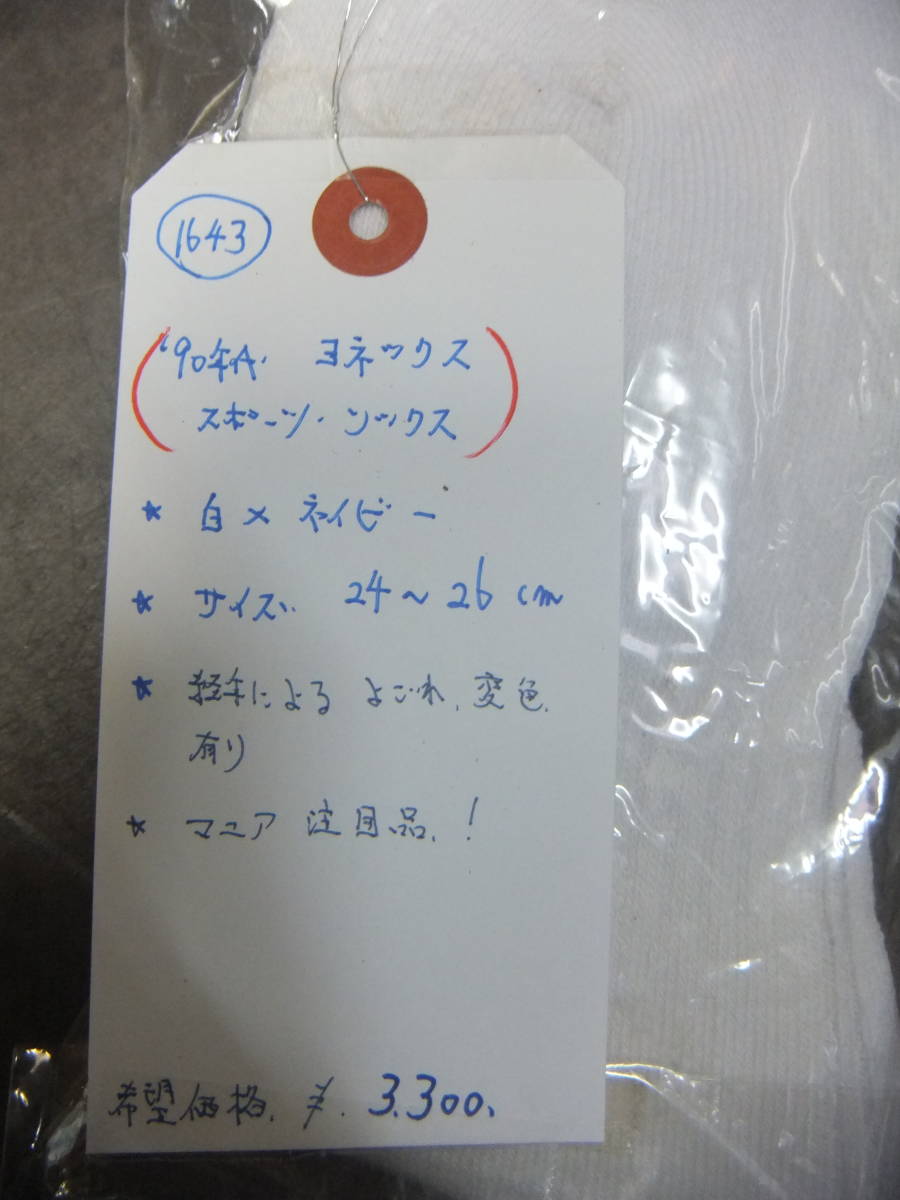 1643
'90年代 ヨネックス
スポーツ・ソックス
* 白×ネイビー
* サイズ. 24~26cm
* 経年による よごれ、変色、
有り
* マニア 注目品、!
希望価格、¥. 3.300、